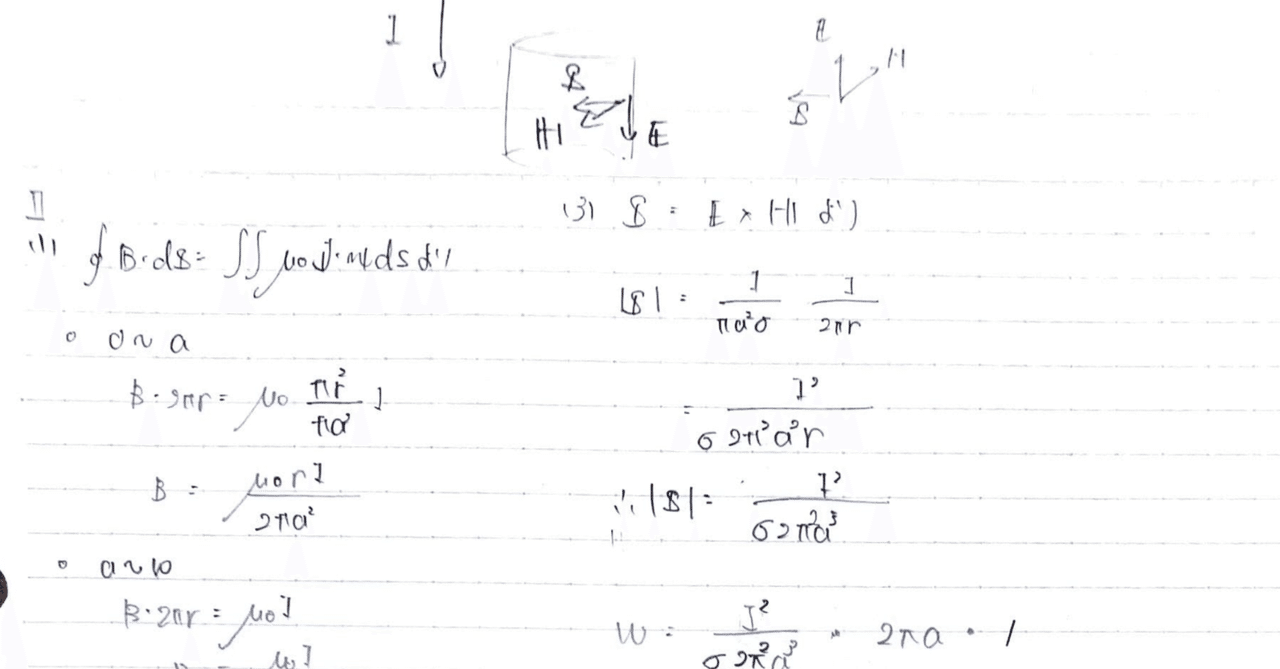 I
S
H
E
E
H
S
II
(1) ∮ B·ds = ∬ μ₀ J·n ds より
○ 0 ~ a
B·2πr = μ₀ πr²/πa² I
B = μ₀rI/2πa²
○ a ~ b
B·2πr = μ₀I
μ₀I
(3) S = E × H より
|S| = I/πa²σ I/2πr
= I²/σ2π²a²r
∴ |S| = I²/σ2π²a³
W = I²/σ2π²a³ · 2πa · 1